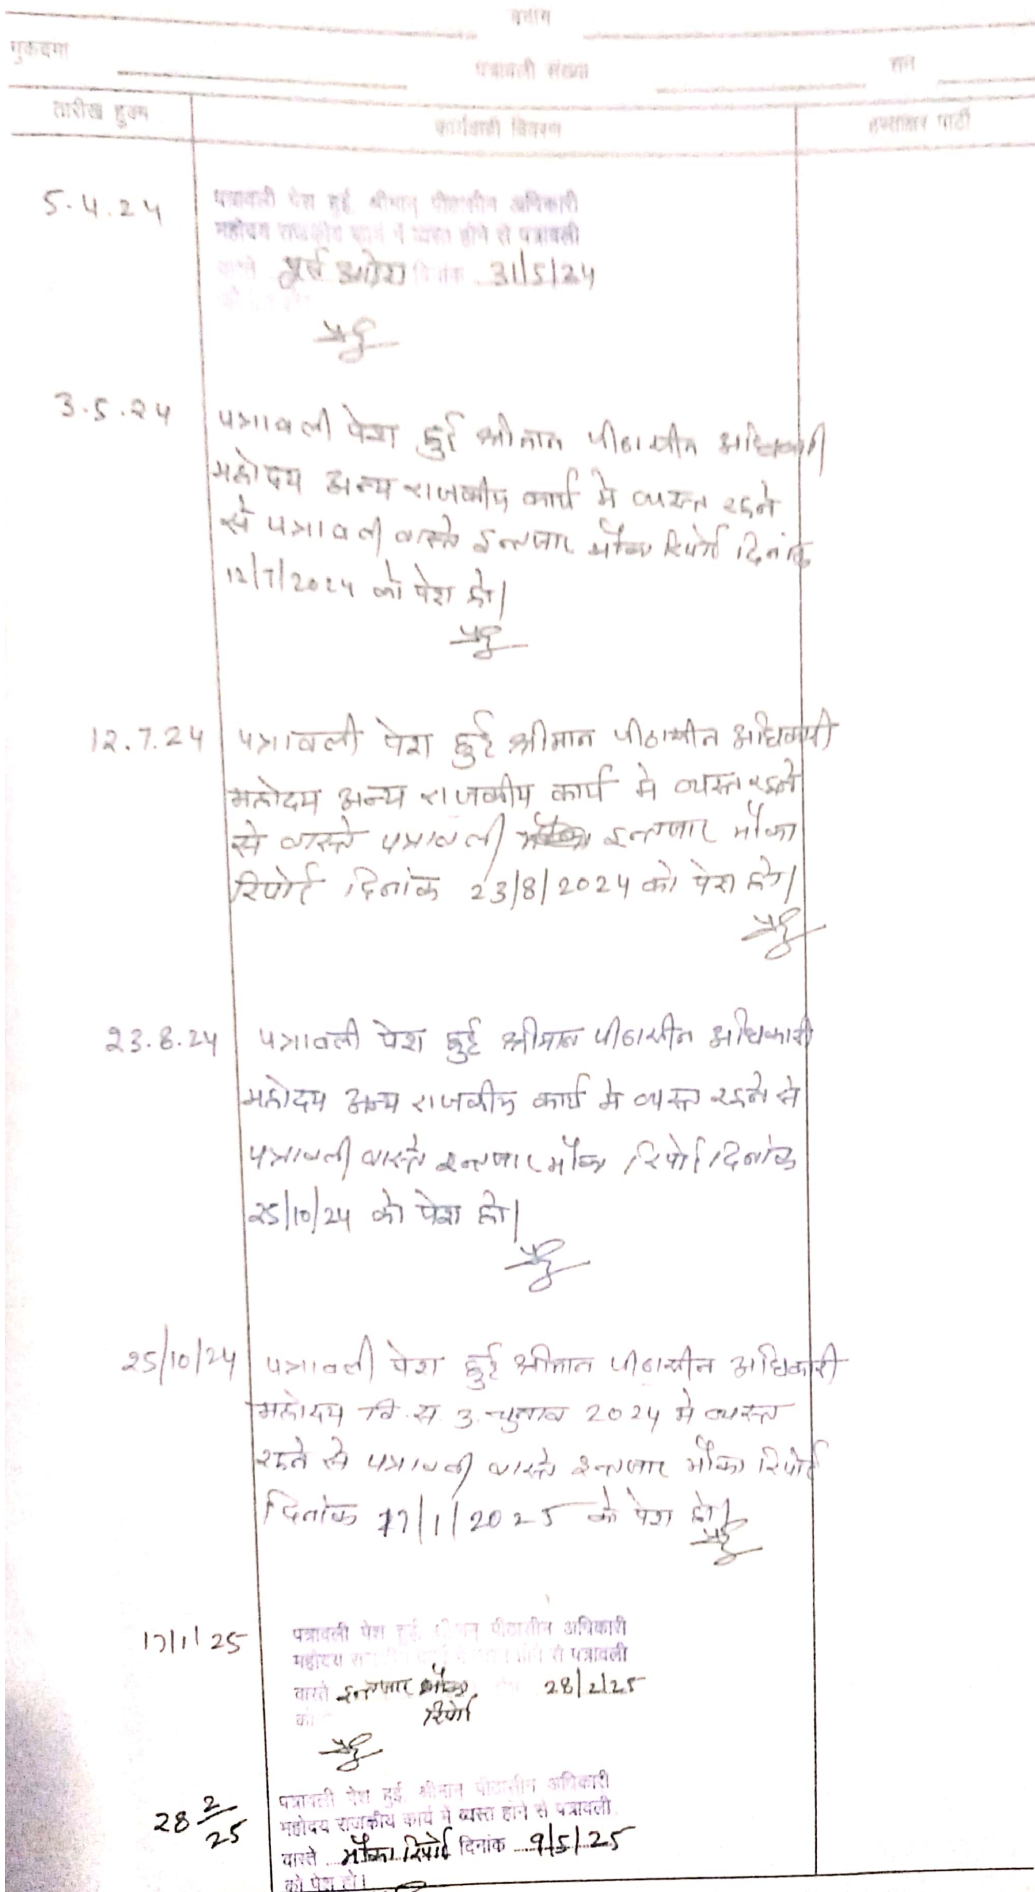 बनाम
मुकदमा पत्रावली संख्या सन
तारीख हुक्म कार्यवाही विवरण हस्ताक्षर पार्टी
5.4.24 पत्रावली पेश हुई, श्रीमान् पीठासीन अधिकारी
महोदय राजकीय कार्य में व्यस्त होने से पत्रावली
वास्ते पूर्व आदेश दिनांक 31/5/24
3.5.24 पत्रावली पेश हुई श्रीमान पीठासीन अधिकारी
महोदय अन्य राजकीय कार्य मे व्यस्त रहने
से पत्रावली वास्ते इन्तजार मौका रिपोर्ट दिनांक
12/7/2024 को पेश हो।
12.7.24 पत्रावली पेश हुई श्रीमान पीठासीन अधिकारी
महोदय अन्य राजकीय कार्य मे व्यस्त रहने
से वास्ते पत्रावली इन्तजार मौका
रिपोर्ट दिनांक 23/8/2024 को पेश हो।
23.8.24 पत्रावली पेश हुई श्रीमान पीठासीन अधिकारी
महोदय अन्य राजकीय कार्य मे व्यस्त रहने से
पत्रावली वास्ते इन्तजार मौका रिपोर्ट दिनांक
25/10/24 को पेश हो।
25/10/24 पत्रावली पेश हुई श्रीमान पीठासीन अधिकारी
महोदय वि.स. उ. चुनाव 2024 मे व्यस्त
रहने से पत्रावली वास्ते इन्तजार मौका रिपोर्ट
दिनांक 17/1/2025 को पेश हो।
17/1/25 पत्रावली पेश हुई, श्रीमान् पीठासीन अधिकारी
महोदय से पत्रावली
वास्ते इन्तजार मौका 28/2/25
को रिपोर्ट
28 2/25 पत्रावली पेश हुई, श्रीमान पीठासीन अधिकारी
महोदय राजकीय कार्य में व्यस्त होने से पत्रावली
वास्ते मौका रिपोर्ट दिनांक 9/5/25
को पेश हो।